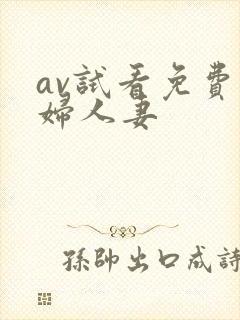 av試看免費
婦人妻
孫帥出口成詩